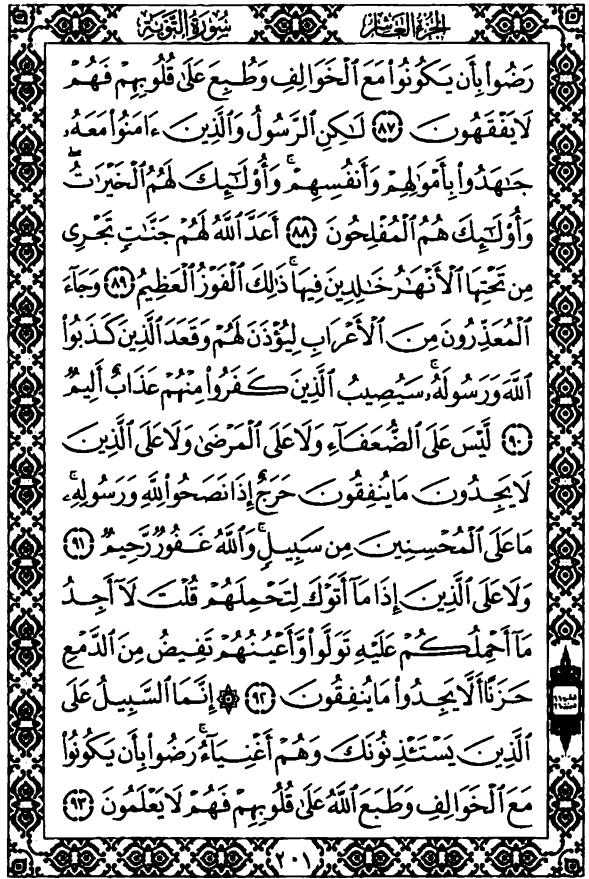 الجزء العاشر سورة التوبة
رَضُوا۟ بِأَن يَكُونُوا۟ مَعَ ٱلْخَوَالِفِ وَطُبِعَ عَلَىٰ قُلُوبِهِمْ فَهُمْ
لَا يَفْقَهُونَ ﴿٨٧﴾ لَـٰكِنِ ٱلرَّسُولُ وَٱلَّذِينَ ءَامَنُوا۟ مَعَهُۥ
جَـٰهَدُوا۟ بِأَمْوَٰلِهِمْ وَأَنفُسِهِمْ ۚ وَأُو۟لَـٰٓئِكَ لَهُمُ ٱلْخَيْرَٰتُ ۖ
وَأُو۟لَـٰٓئِكَ هُمُ ٱلْمُفْلِحُونَ ﴿٨٨﴾ أَعَدَّ ٱللَّهُ لَهُمْ جَنَّـٰتٍ تَجْرِى
مِن تَحْتِهَا ٱلْأَنْهَـٰرُ خَـٰلِدِينَ فِيهَا ۚ ذَٰلِكَ ٱلْفَوْزُ ٱلْعَظِيمُ ﴿٨٩﴾ وَجَآءَ
ٱلْمُعَذِّرُونَ مِنَ ٱلْأَعْرَابِ لِيُؤْذَنَ لَهُمْ وَقَعَدَ ٱلَّذِينَ كَذَبُوا۟
ٱللَّهَ وَرَسُولَهُۥ ۚ سَيُصِيبُ ٱلَّذِينَ كَفَرُوا۟ مِنْهُمْ عَذَابٌ أَلِيمٌ
﴿٩٠﴾ لَّيْسَ عَلَى ٱلضُّعَفَآءِ وَلَا عَلَى ٱلْمَرْضَىٰ وَلَا عَلَى ٱلَّذِينَ
لَا يَجِدُونَ مَا يُنفِقُونَ حَرَجٌ إِذَا نَصَحُوا۟ لِلَّهِ وَرَسُولِهِۦ ۚ
مَا عَلَى ٱلْمُحْسِنِينَ مِن سَبِيلٍ ۚ وَٱللَّهُ غَفُورٌ رَّحِيمٌ ﴿٩١﴾
وَلَا عَلَى ٱلَّذِينَ إِذَا مَآ أَتَوْكَ لِتَحْمِلَهُمْ قُلْتَ لَآ أَجِدُ
مَآ أَحْمِلُكُمْ عَلَيْهِ تَوَلَّوا۟ وَّأَعْيُنُهُمْ تَفِيضُ مِنَ ٱلدَّمْعِ
حَزَنًا أَلَّا يَجِدُوا۟ مَا يُنفِقُونَ ﴿٩٢﴾ ۞ إِنَّمَا ٱلسَّبِيلُ عَلَى
ٱلَّذِينَ يَسْتَـْٔذِنُونَكَ وَهُمْ أَغْنِيَآءُ ۚ رَضُوا۟ بِأَن يَكُونُوا۟
مَعَ ٱلْخَوَالِفِ وَطَبَعَ ٱللَّهُ عَلَىٰ قُلُوبِهِمْ فَهُمْ لَا يَعْلَمُونَ ﴿٩٣﴾
٢٠١